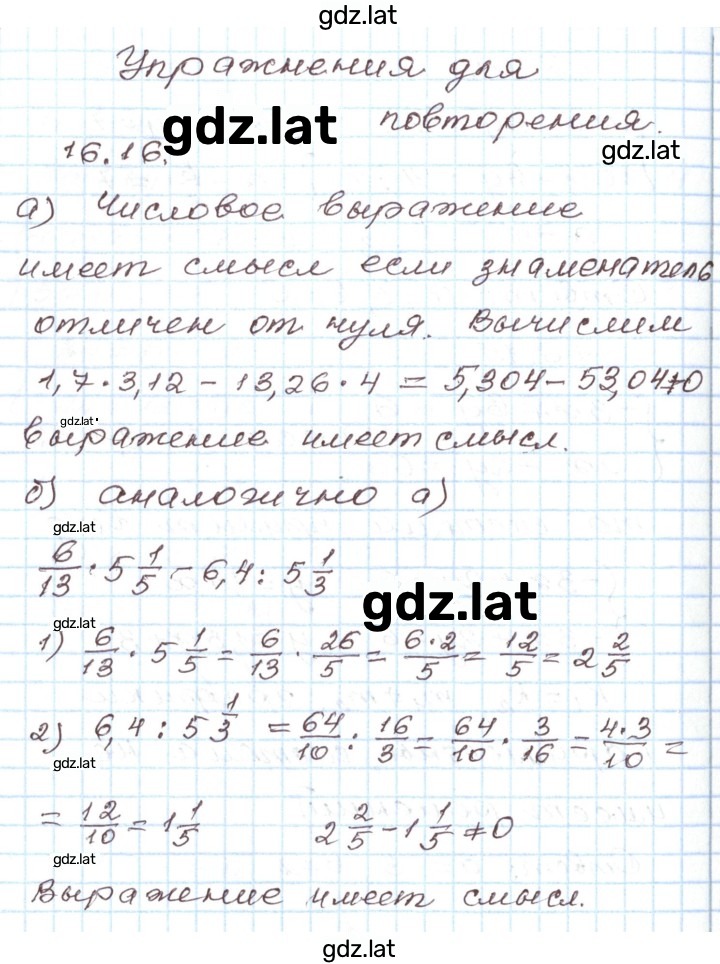 gdz.lat
Упражнения для
gdz.lat повторения.
16.16. gdz.lat
а) Числовое выражение
имеет смысл если знаменатель
отличен от нуля. Вычислим
1,7 · 3,12 - 13,26 · 4 = 5,304 - 53,04 ≠ 0
gdz.lat
выражение имеет смысл.
б) аналогично а)
gdz.lat
6/13 · 5 1/5 - 6,4 : 5 1/3
gdz.lat
gdz.lat
1) 6/13 · 5 1/5 = 6/13 · 26/5 = 6·2/5 = 12/5 = 2 2/5
2) 6,4 : 5 1/3 = 64/10 : 16/3 = 64/10 · 3/16 = 4·3/10 =
gdz.lat
= 12/10 = 1 1/5 2 2/5 - 1 1/5 ≠ 0
gdz.lat
Выражение имеет смысл.
gdz.lat